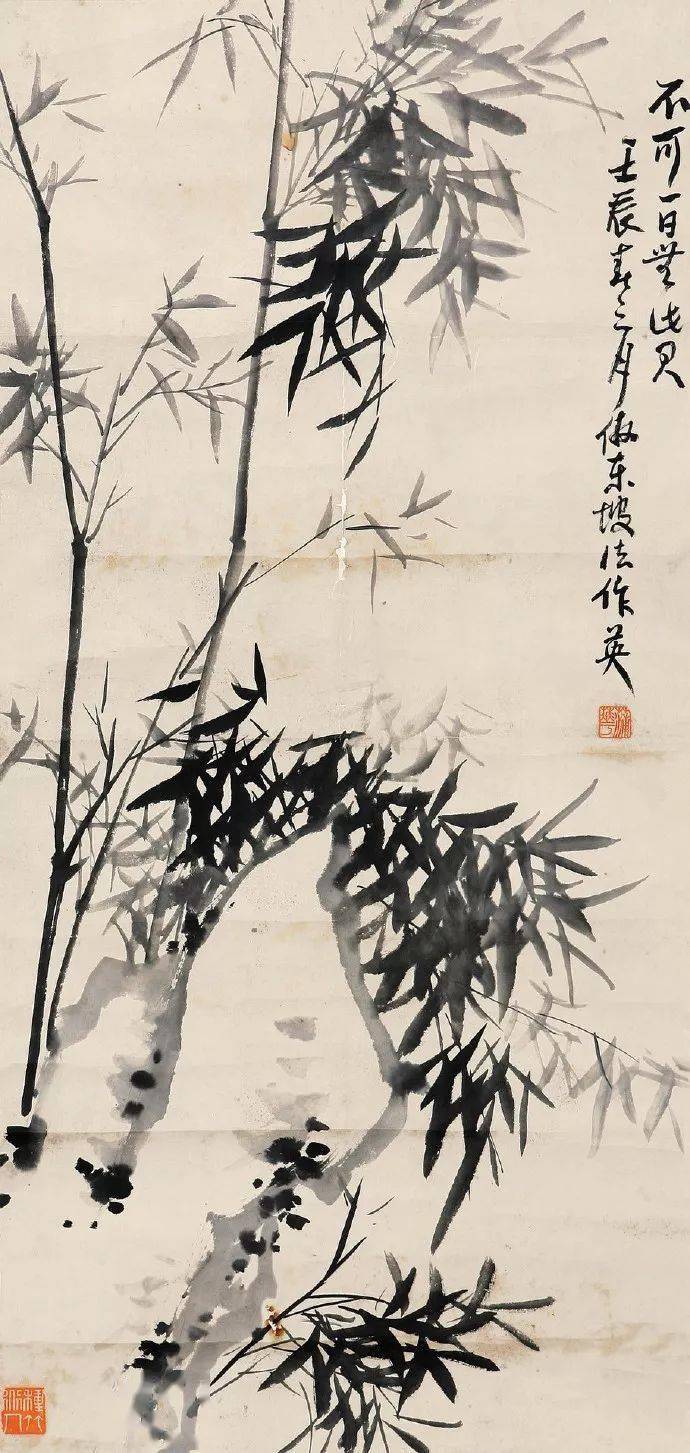 不可一日無此君
壬辰春三月倣东坡法作英
蒲華